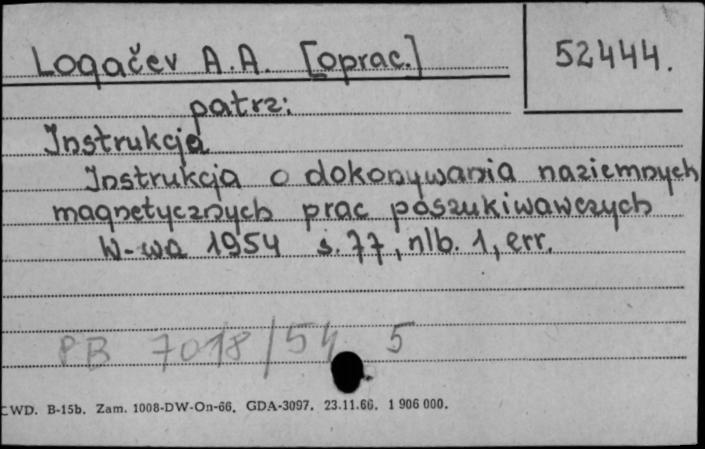 Logačev A.A. [oprac.]
52444.
patrz:
Instrukcja
Instrukcja o dokonywania naziemnych
magnetycznych prac poszukiwawczych
W-wa 1954 s. 77, nlb. 1, err.
PB 7018/54 5
CWD. B-15b. Zam. 1008-DW-On-66. GDA-3097. 23.11.66. 1 906 000.